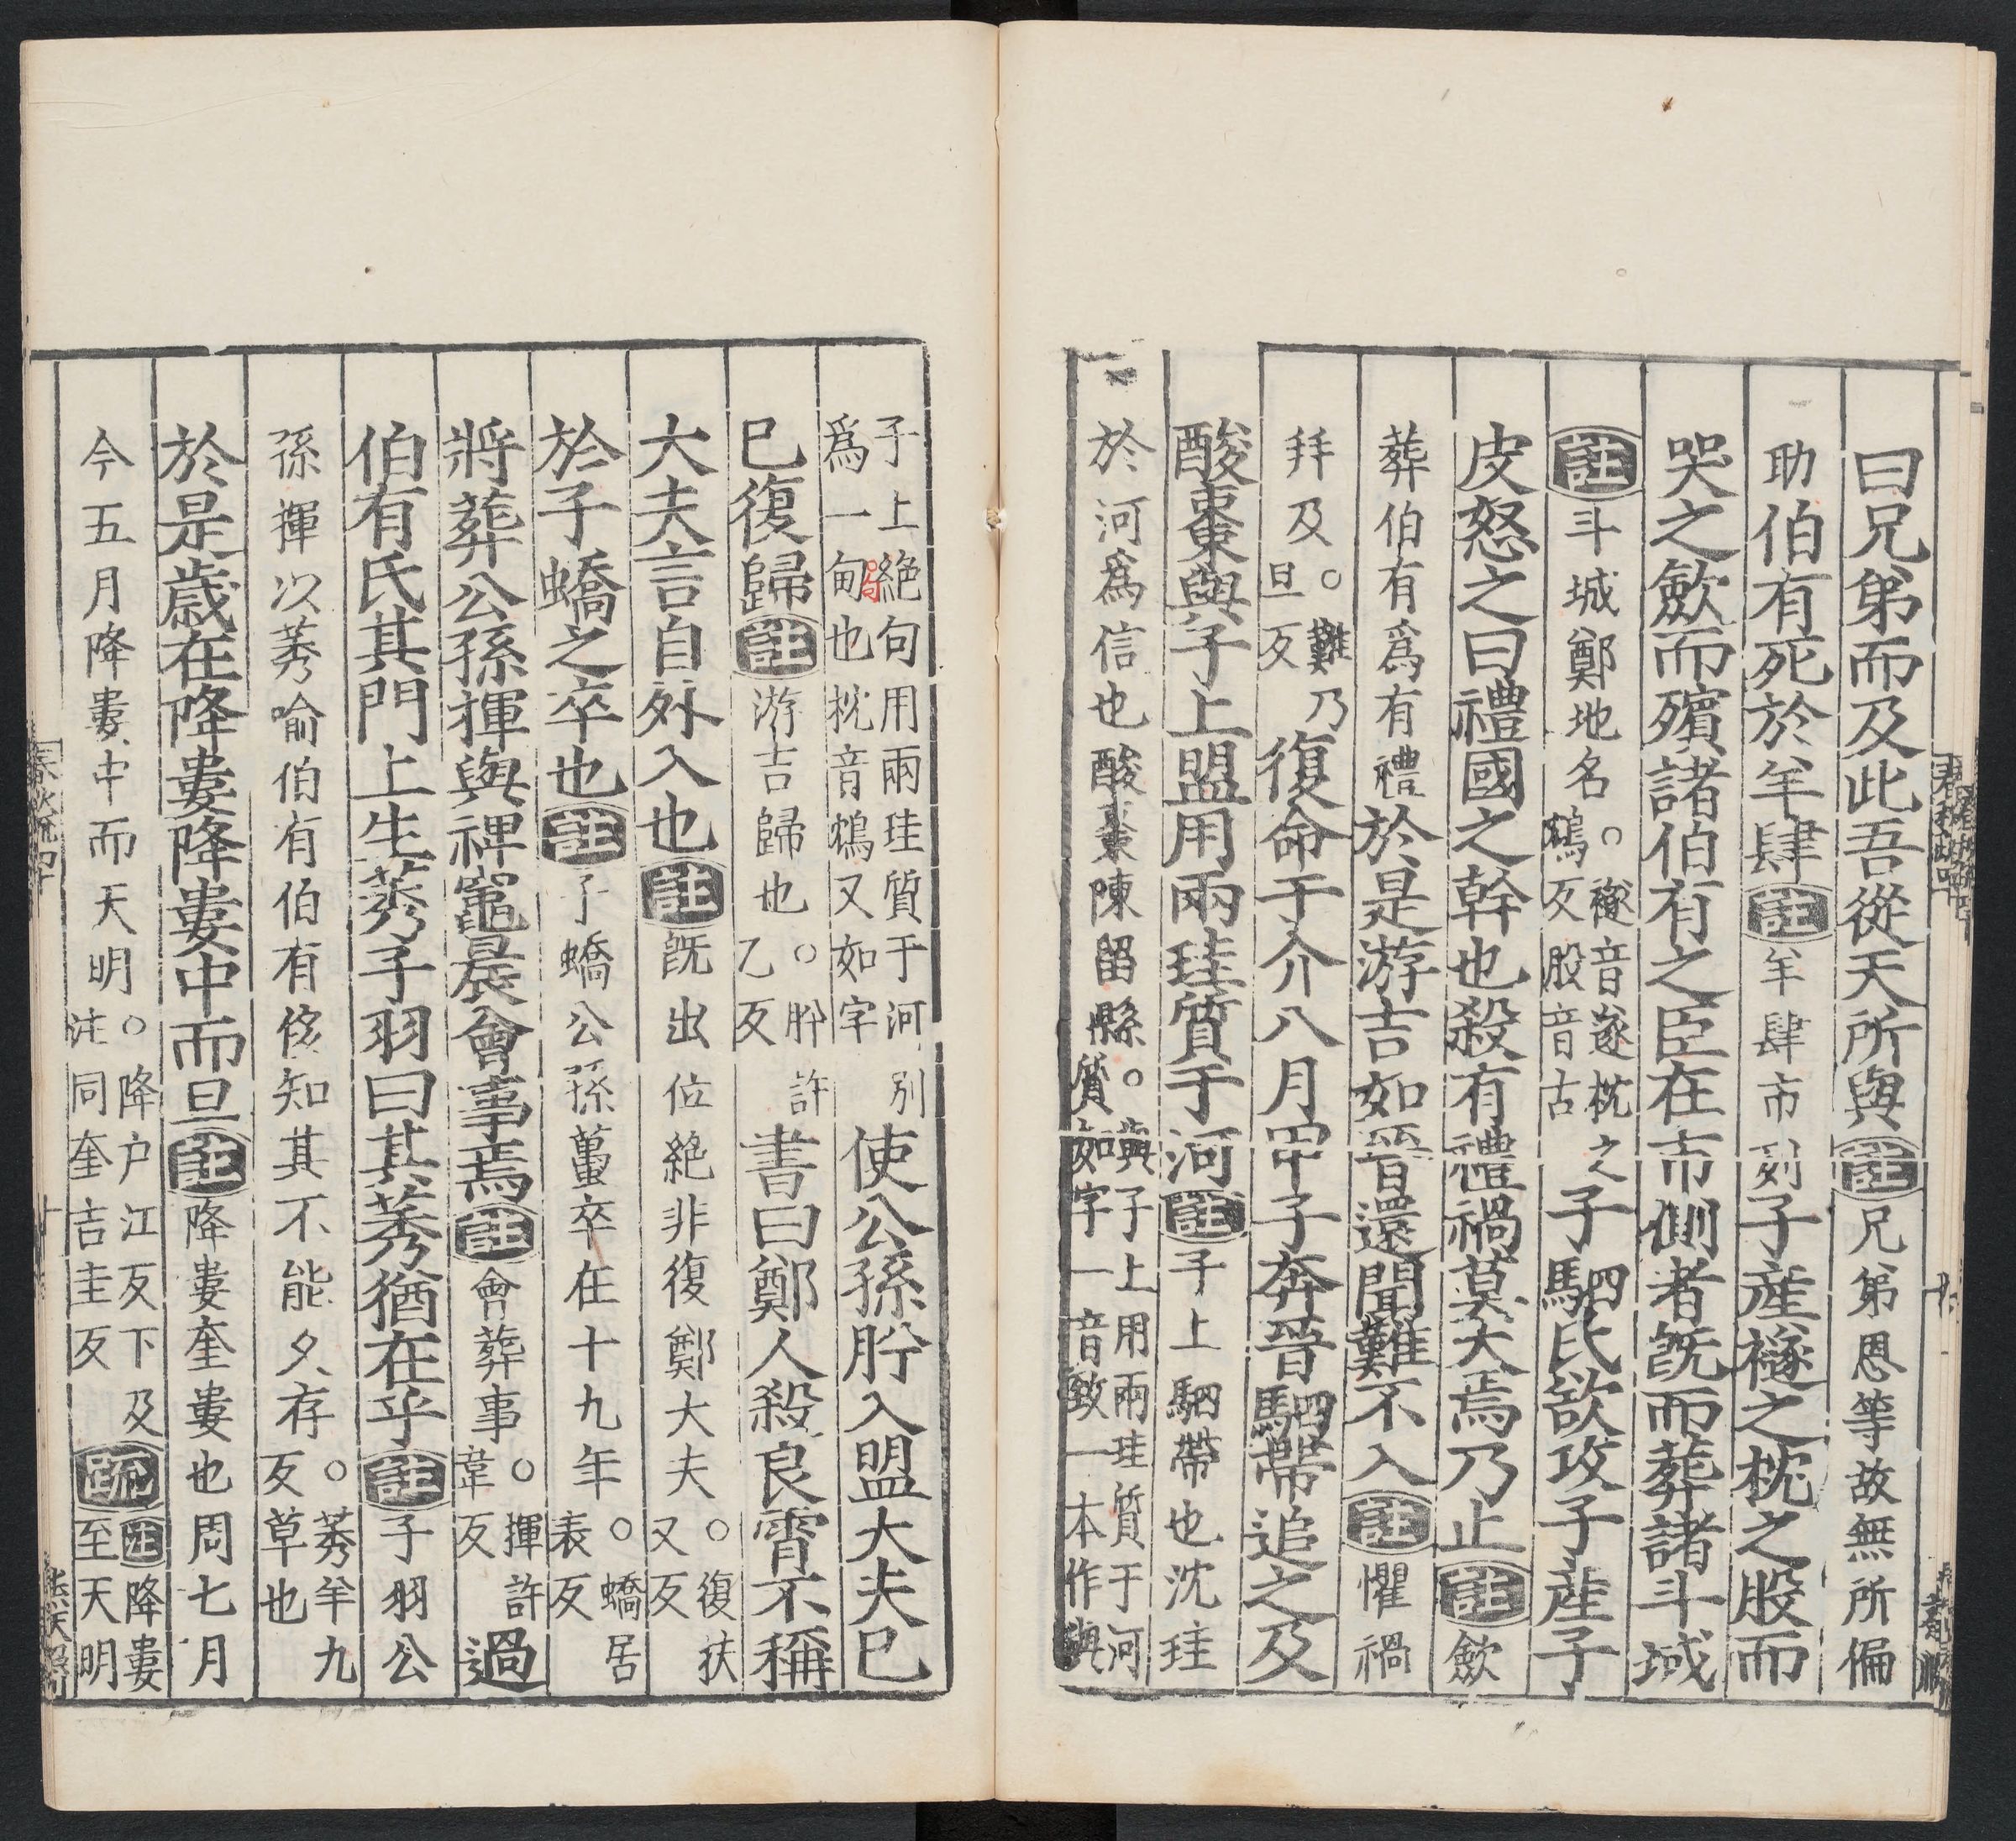 曰兄弟而及此吾從天所與註兄弟恩等故無所偏
助伯有死於羊肆註羊肆市列子産襚之枕之股而
哭之斂而殯諸伯有之臣在市側者既而葬諸斗城
註斗城鄭地名○襚音遂枕之鴆反股音古子駟氏欲攻子產子
皮怒之曰禮國之幹也殺有禮禍莫大焉乃止註斂
葬伯有爲有禮於是游吉如晉還聞難不入註懼禍
拜及○難乃旦反復命于介八月甲子奔晉駟帶追之及
酸棗與子上盟用兩珪質于河註子上駟帶也沈珪
於河爲信也酸棗陳留縣○與子上用兩珪質于河質如字一音致一本作與
子上絶句用兩珪質于河別爲一句也枕音鴆又如字使公孫肹入盟大夫巳
巳復歸註游吉歸也○肹許乙反書曰鄭人殺良霄不稱
大夫言自外入也註既出位絶非復鄭大夫○復扶又反
於子蟜之卒也註子蟜公孫蠆卒在十九年○蟜居表反
將葬公孫揮與裨竈晨會事焉註會葬事○揮許韋反過
伯有氏其門上生莠子羽曰其莠猶在乎註子羽公
孫揮以莠喻伯有伯有侈知其不能久存○莠羊九反草也
於是歲在降婁降婁中而旦註降婁奎婁也周七月
今五月降婁中而天明○降户江反下及注同奎吉圭反疏注降婁至天明